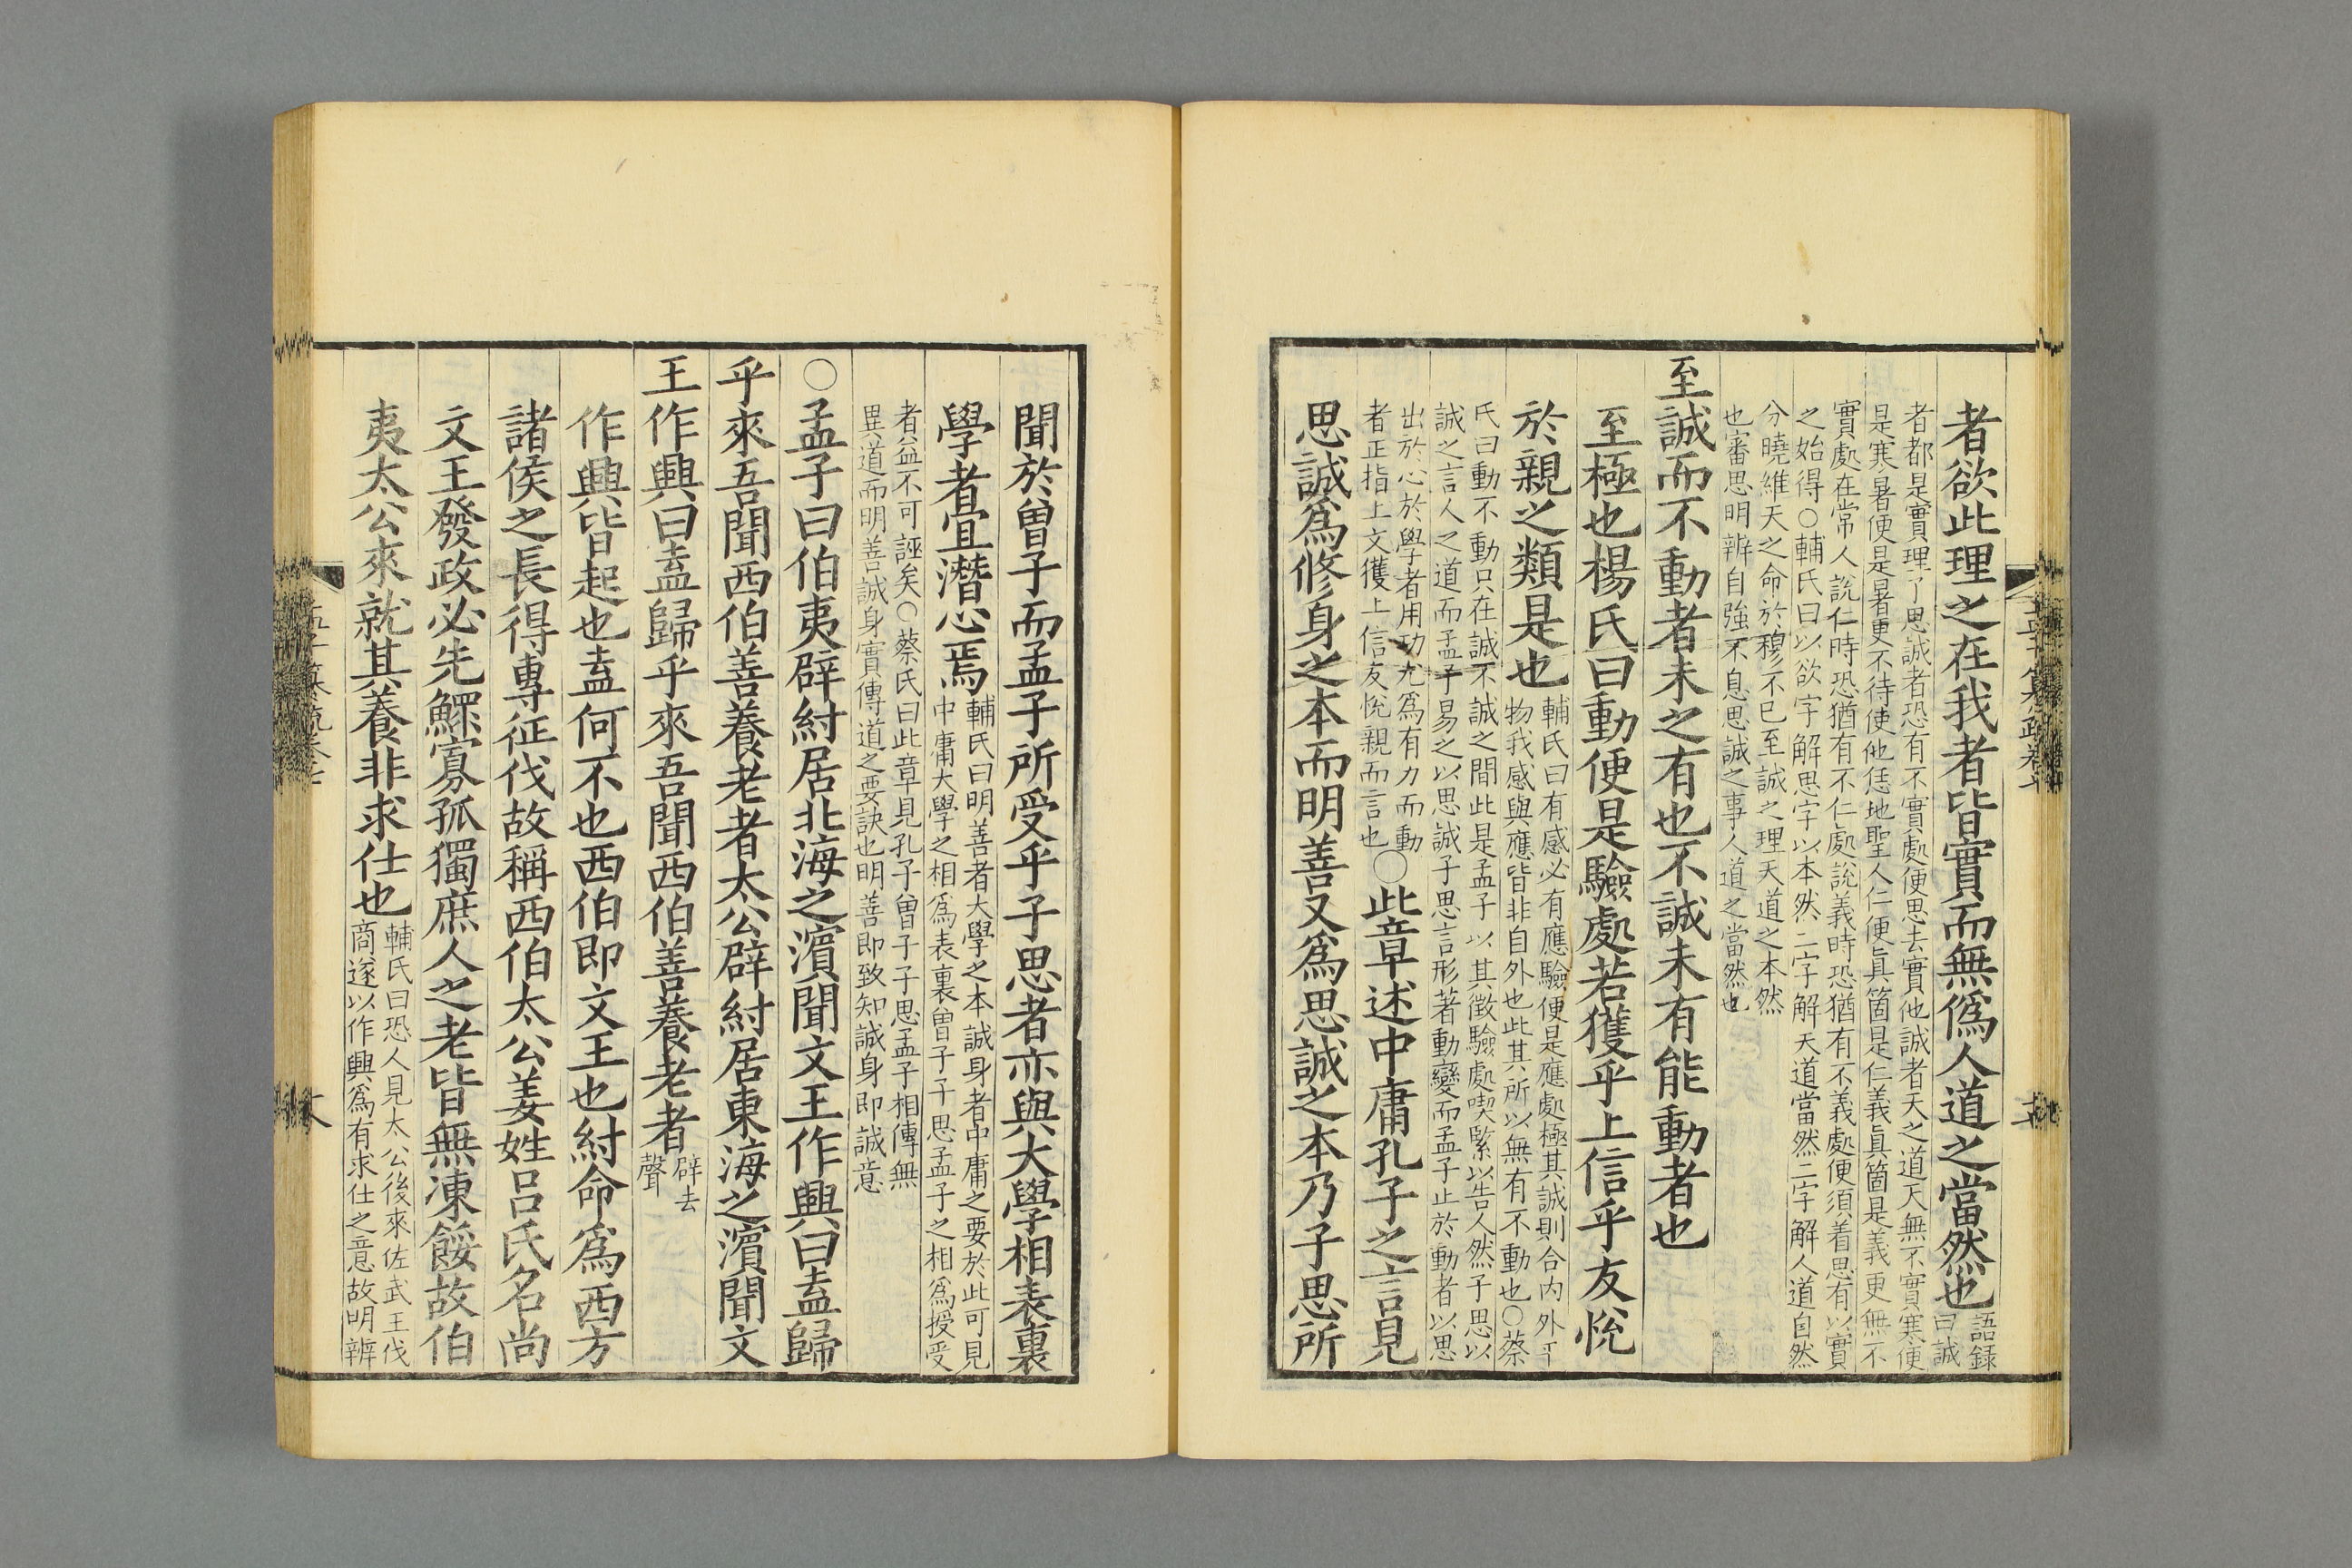 者欲此理之在我者皆實而無僞人道之當然也語録
曰誠
者都是實理了思誠者恐有不實處便思去實他誠者天之道天無不實寒便
是寒暑便是暑更不待使他恁地聖人仁便眞箇是仁義眞箇是義更無不
實處在常人說仁時恐猶有不仁處說義時恐猶有不義處便須着思有以實
之始得○輔氏曰以欲字解思字以本然二字解天道當然二字解人道自然
分曉維天之命於穆不已至誠之理天道之本然
也審思明辨自強不息思誠之事人道之當然也
至誠而不動者未之有也不誠未有能動者也
至極也楊氏曰動便是驗處若獲乎上信乎友悅
於親之類是也輔氏曰有感必有應驗便是應處極其誠則合內外平
物我感與應皆非自外也此其所以無有不動也○蔡
氏曰動不動只在誠不誠之間此是孟子以其徵驗處喫緊以告人然子思以
誠之言人之道而孟子易之以思誠子思言形著動變而孟子止於動者以思
出於心於學者用功尤爲有力而動
者正指上文獲上信友悅親而言也○此章述中庸孔子之言見
思誠爲修身之本而明善又爲思誠之本乃子思所
聞於曾子而孟子所受乎子思者亦與大學相表裏
學者宜潛心焉輔氏曰明善者大學之本誠身者中庸之要於此可見
中庸大學之相爲表裏曾子子思孟子之相爲授受
者益不可誣矣○蔡氏曰此章見孔子曾子子思孟子相傳無
異道而明善誠身實傳道之要訣也明善即致知誠身即誠意
○孟子曰伯夷辟紂居北海之濱聞文王作興曰盍歸
乎來吾聞西伯善養老者太公辟紂居東海之濱聞文
王作興曰盍歸乎來吾聞西伯善養老者辟去
聲
作興皆起也盍何不也西伯即文王也紂命爲西方
諸侯之長得專征伐故稱西伯太公姜姓呂氏名尚
文王發政必先鰥寡孤獨庶人之老皆無凍餒故伯
夷太公來就其養非求仕也輔氏曰恐人見太公後來佐武王伐
商遂以作興爲有求仕之意故明辨